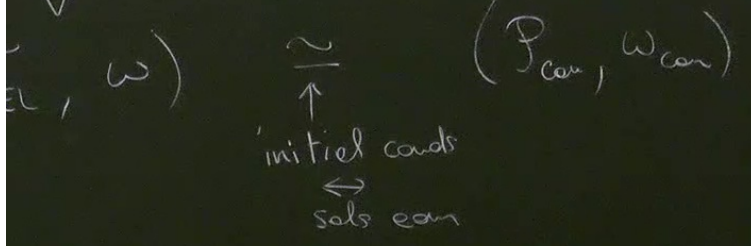 EL, ω) ≅ (P_can, ω_can)
↑
initial conds
↔
sols eom